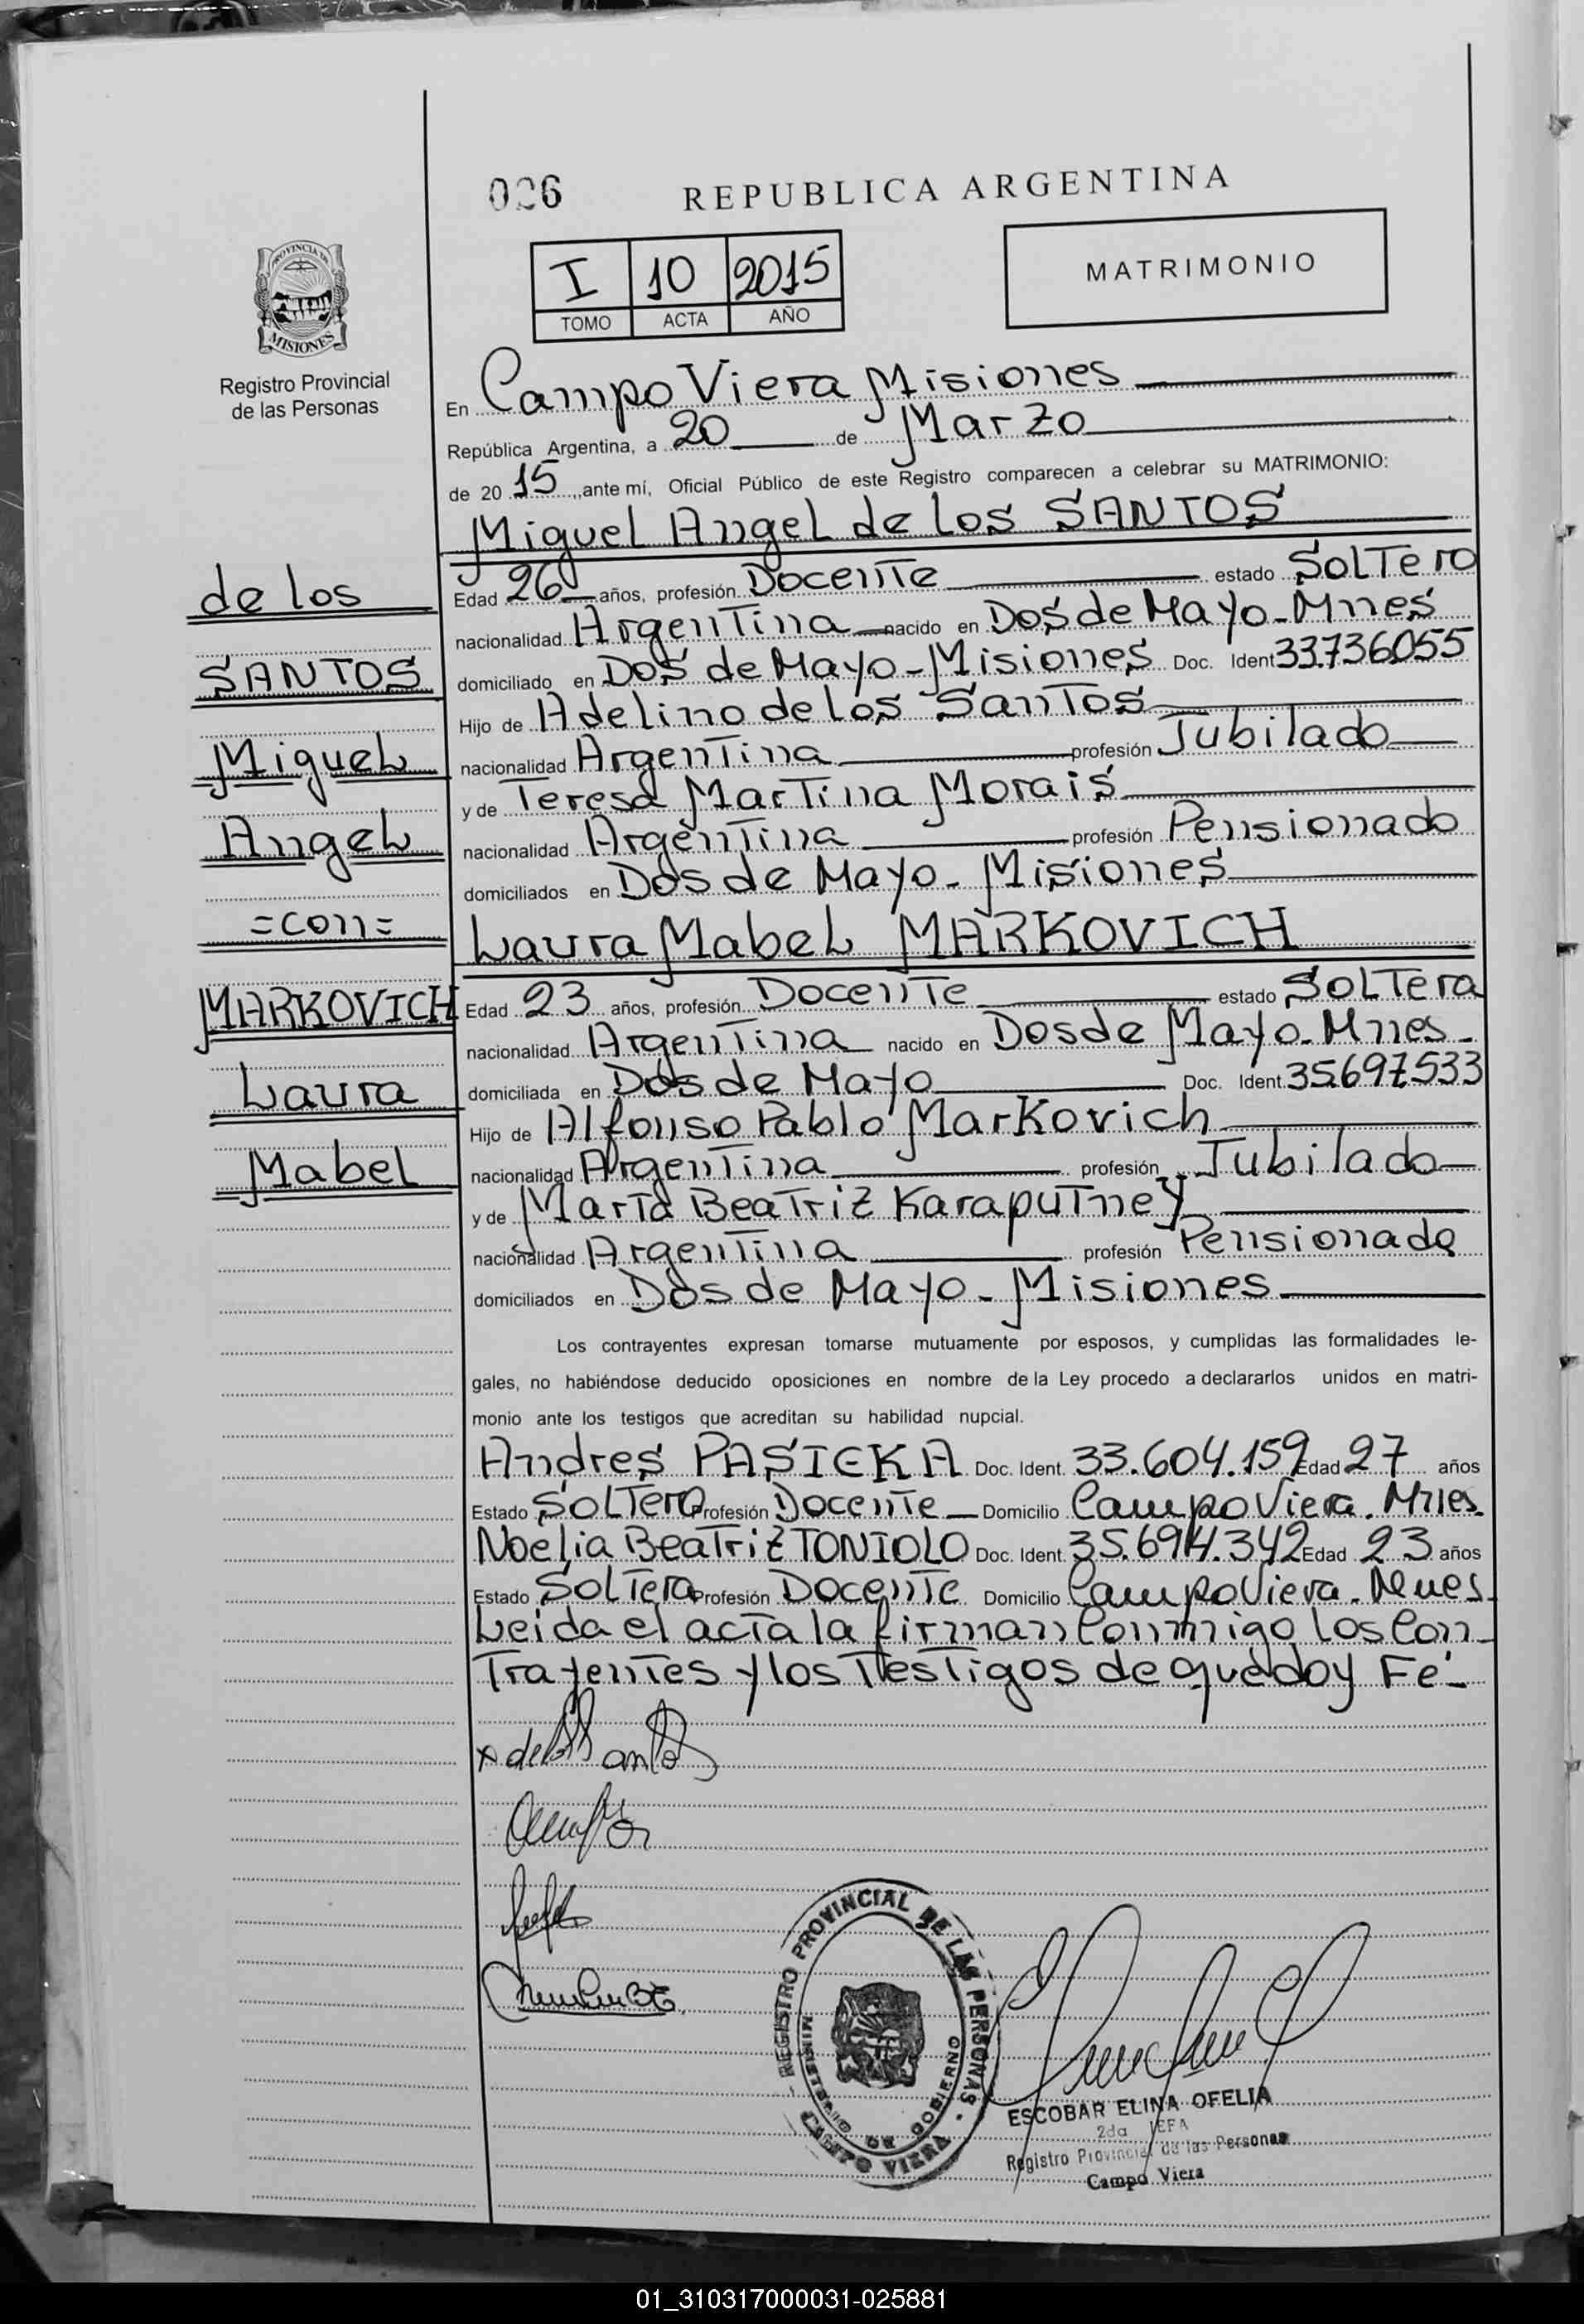 026
REPUBLICA ARGENTINA
I 10 2015
TOMO ACTA AÑO
MATRIMONIO
PROVINCIA DE
MISIONES
Registro Provincial
de las Personas
En Campo Viera Misiones
República Argentina, a 20 de Marzo
de 20 15, ante mí, Oficial Público de este Registro comparecen a celebrar su MATRIMONIO:
Miguel Angel de los SANTOS
de los
SANTOS
Miguel
Angel
=con=
MARKOVICH
Laura
Mabel
Edad 26 años, profesión Docente estado Soltero
nacionalidad Argentina nacido en Dos de Mayo-Mnes
domiciliado en Dos de Mayo-Misiones Doc. Ident 33736055
Hijo de Adelino de los Santos
nacionalidad Argentina profesión Jubilado
y de Teresa Martina Morais
nacionalidad Argentina profesión Pensionado
domiciliados en Dos de Mayo-Misiones
Laura Mabel MARKOVICH
Edad 23 años, profesión Docente estado Soltera
nacionalidad Argentina nacido en Dos de Mayo-Mnes-
domiciliada en Dos de Mayo Doc. Ident. 35.697.533
Hijo de Alfonso Pablo Markovich
nacionalidad Argentina profesión Jubilado
y de María Beatriz Karaputney
nacionalidad Argentina profesión Pensionada
domiciliados en Dos de Mayo-Misiones
Los contrayentes expresan tomarse mutuamente por esposos, y cumplidas las formalidades le-
gales, no habiéndose deducido oposiciones en nombre de la Ley procedo a declararlos unidos en matri-
monio ante los testigos que acreditan su habilidad nupcial.
Andres PASIEKA Doc. Ident. 33.604.159 Edad 27 años
Estado Soltero Profesión Docente Domicilio Campo Viera. Mnes.
Noelia Beatriz TONIOLO Doc. Ident. 35.694.342 Edad 23 años
Estado Soltera Profesión Docente Domicilio Campo Viera. Mnes.
Leida el acta la firman conmigo los con-
trayentes y los testigos de que doy Fe-
x de los Santos
REGISTRO PROVINCIAL DE LAS PERSONAS
MINISTERIO DE GOBIERNO
CAMPO VIERA
ESCOBAR ELINA OFELIA
2da JEFA
Registro Provincial de las Personas
Campo Viera
01_310317000031-025881